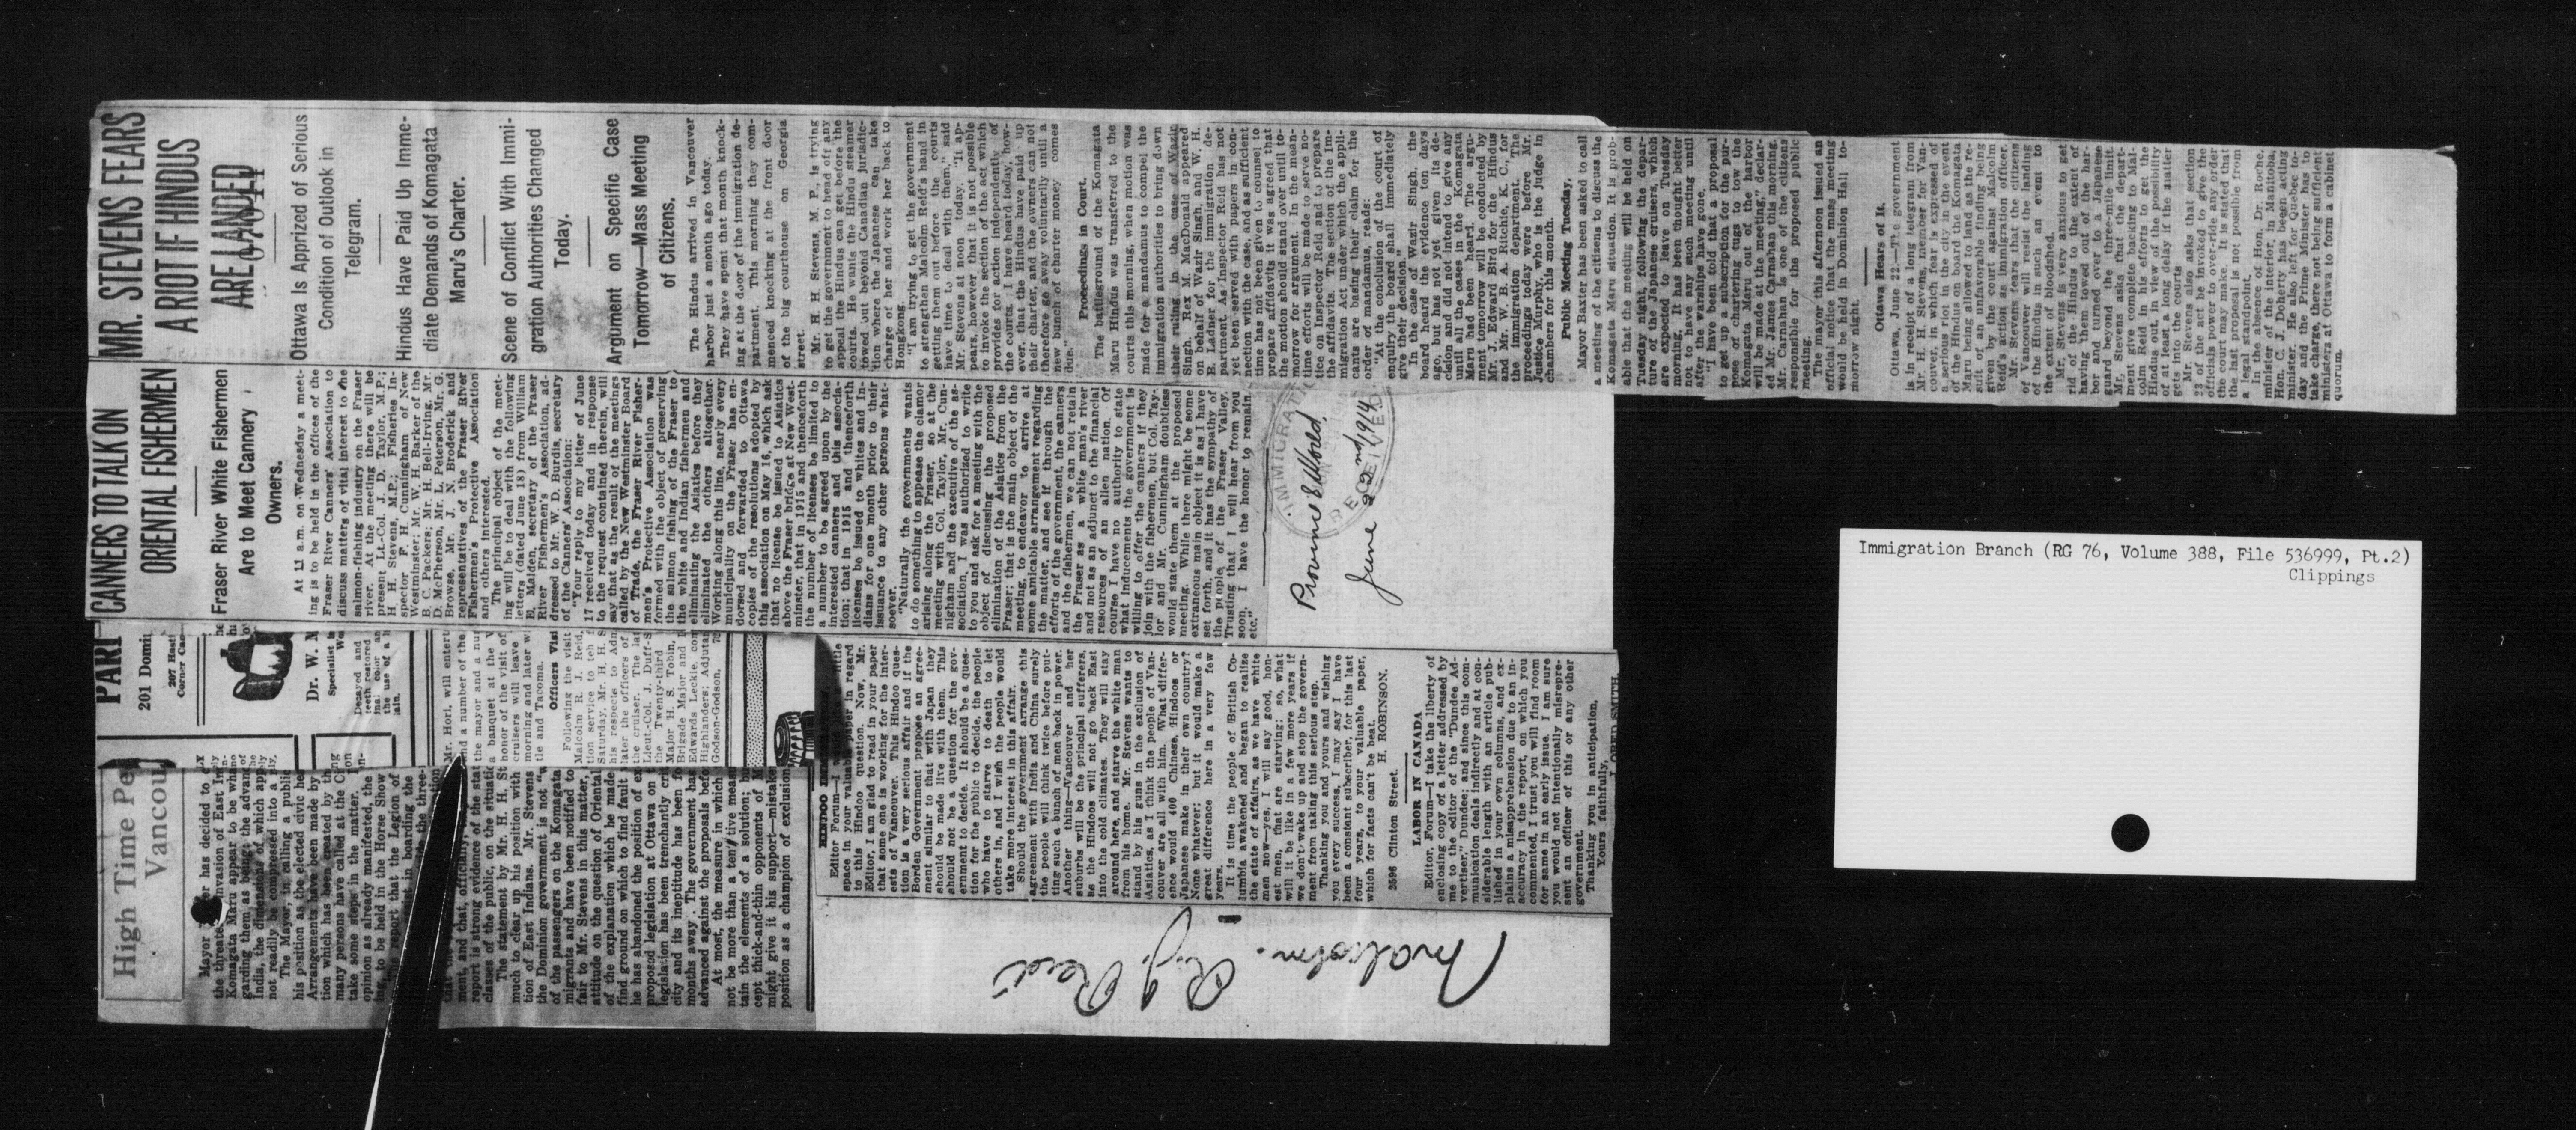 MR. STEVENS FEARS
A RIOT IF HINDUS
ARE LANDED
Ottawa Is Apprized of Serious
Condition of Outlook in
Telegram.
Hindus Have Paid Up Imme-
diate Demands of Komagata
Maru's Charter.
Scene of Conflict With Immi-
gration Authorities Changed
Today.
Argument on Specific Case
Tomorrow—Mass Meeting
of Citizens.
The Hindus arrived in Vancouver
harbor just a month ago today.
They have spent that month knock-
ing at the door of the immigration de-
partment. This morning they com-
menced knocking at the front door
of the big courthouse on Georgia
street.
Mr. H. H. Stevens, M. P., is trying
to get the government to head off any
appeal the Hindus can get before the
courts. He wants the Hindu steamer
towed out beyond Canadian jurisdic-
tion where the Japanese can take
charge of her and work her back to
Hongkong.
"I am trying to get the government
to strengthen Malcolm Reid's hand in
getting them out before the courts
have time to deal with them," said
Mr. Stevens at noon today. "It ap-
pears, however, that it is not possible
to invoke the section of the act which
provides for action independently of
the courts. I have heard today, how-
ever, that the Hindus have paid up
their charter, and the owners can not
therefore go away voluntarily until a
new bunch of charter money comes
due."
Proceedings in Court.
The battleground of the Komagata
Maru Hindus was transferred to the
courts this morning, when motion was
made for a mandamus to compel the
immigration authorities to bring down
their ruling in the case of Wazir
Singh. Rex M. MacDonald appeared
on behalf of Wazir Singh, and W. H.
E. Ladner for the immigration de-
partment. As Inspector Reid has not
yet been served with papers in con-
nection with the case, and as sufficient
time has not been given to counsel to
prepare affidavits it was agreed that
the motion should stand over until to-
morrow for argument. In the mean-
time efforts will be made to serve no-
tice on Inspector Reid and to prepare
the affidavits. The section of the Im-
migration Act under which the appli-
cants are basing their claim for the
order of mandamus, reads:
"At the conclusion of the court of
enquiry the board shall immediately
give their decision."
In the case of Wazir Singh, the
board heard the evidence ten days
ago, but has not yet given its de-
cision and did not intend to give any
until all the cases in the Komagata
Maru had been heard. The argu-
ment tomorrow will be conducted by
Mr. J. Edward Bird for the Hindus
and Mr. W. B. A. Ritchie, K. C., for
the immigration department. The
proceedings today were before Mr.
Justice Murphy, who is the judge in
chambers for this month.
Public Meeting Tuesday.
Mayor Baxter has been asked to call
a meeting of the citizens to discuss the
Komagata Maru situation. It is prob-
able that the meeting will be held on
Tuesday night, following the depar-
ture of the Japanese cruisers, which
are expected to leave on Tuesday
morning. It has been thought better
not to have any such meeting until
after the warships have gone.
"I have been told that a proposal
to get up a subscription for the pur-
pose of chartering tugs to tow the
Komagata Maru out of the harbor
will be made at the meeting," declar-
ed Mr. James Carnahan this morning.
Mr. Carnahan is one of the citizens
responsible for the proposed public
meeting.
The mayor this afternoon issued an
official notice that the mass meeting
would be held in Dominion Hall to-
morrow night.
Ottawa Hears of It.
Ottawa, June 22.—The government
is in receipt of a long telegram from
Mr. H. H. Stevens, member for Van-
couver, in which fear is expressed of
a serious riot in the city in the event
of the Hindus on board the Komagata
Maru being allowed to land as the re-
sult of an unfavorable finding being
given by the court against Malcolm
Reid's action as immigration officer.
Mr. Stevens fears that the citizens
of Vancouver will resist the landing
of the Hindus in such an event to
the extent of bloodshed.
Mr. Stevens is very anxious to get
rid of the Hindus to the extent of
having them towed out of the har-
bor and turned over to a Japanese
guard beyond the three-mile limit.
Mr. Stevens asks that the depart-
ment give complete backing to Mal-
colm Reid in his efforts to get the
Hindus out, in view of the possibility
of at least a long delay if the matter
gets into the courts
Mr. Stevens also asks that section
23 of the act be invoked to give the
officials power to over-ride any order
the court may make. It is stated that
the last proposal is not possible from
a legal standpoint.
In the absence of Hon. Dr. Roche,
minister of the interior, in Manitoba,
Hon. C. J. Doherty has been acting
minister. He also left for Quebec to-
day and the Prime Minister has to
take charge, there not being sufficient
ministers at Ottawa to form a cabinet
quorum.
CANNERS TO TALK ON
ORIENTAL FISHERMEN
Fraser River White Fishermen
Are to Meet Cannery
Owners.
At 11 a.m. on Wednesday a meet-
ing is to be held in the offices of the
Fraser River Canners' Association to
discuss matters of vital interest to the
salmon-fishing industry on the Fraser
river. At the meeting there will be
present Lt.-Col. J. D. Taylor, M.P.;
H. H. Stevens, M.P.; Fisheries In-
spector F. H. Cunningham of New
Westminster; Mr. W. H. Barker of the
B. C. Packers; Mr. H. Bell-Irving, Mr.
D. McPherson, Mr. L. Peterson, Mr. G.
Browse, Mr. J. N. Broderick and
representatives of the Fraser River
Fishermen's Protective Association
and others interested.
The principal object of the meet-
ing will be to deal with the following
letter (dated June 18) from William
E. Maiden, secretary of the Fraser
River Fishermen's Association, ad-
dressed to Mr. W. D. Burdis, secretary
of the Canners' Association:
"Your reply to my letter of June
17 received today and in response
to the request contained therein, I will
say that as the result of the meetings
called by the New Westminster Board
of Trade, the Fraser River Fisher-
men's Protective Association was
formed with the object of preserving
the salmon fishing of the Fraser to
the white and Indian fishermen and
eliminating the Asiatics before they
eliminated the others altogether.
Working along this line, nearly every
municipality on the Fraser has en-
dorsed and forwarded to Ottawa
copies of the resolutions adopted by
this association on May 16, which ask
that no license be issued to Asiatics
above the Fraser bridge at New West-
minster, that in 1915 and thenceforth
the number of licenses be limited to
a number to be agreed upon by the
interested canners and this associa-
tion; that in 1915 and thenceforth
licenses be issued to whites and In-
dians for one month prior to their
issuance to any other persons what-
soever.
"Naturally the governments wants
to do something to appease the clamor
arising along the Fraser, so at the
meeting with Col. Taylor, Mr. Cun-
ningham and the executive of the as-
sociation, I was authorized to write
to you and ask for a meeting with the
object of discussing the proposed
elimination of the Asiatics from the
Fraser; that is the main object of the
meeting, to endeavor to arrive at
some amicable arrangement regarding
the matter, and see if through the
efforts of the government, the canners
and the fishermen, we can not retain
the Fraser as a white man's river
and not as an adjunct to the financial
resources of an alien nation. Of
course I have no authority to state
what inducements the government is
willing to offer the canners if they
join with the fishermen, but Col. Tay-
lor and Mr. Cunningham doubtless
would state them at the proposed
meeting. While there might be some
extraneous main object it is as I have
set forth, and it has the sympathy of
the people of the Fraser Valley.
Trusting that I will hear from you
soon, I have the honor to remain,
etc."
IMMIGRATI
RECEIVED
Province & World
June 22nd 1914
PARI
201 Domi
207 Hast
Corner Cam
Dr. W. M
Specialist in
We
Decayed and
teeth restored
inal color an
the use of a h
lain.
Mr. Hori, will entert
and a number of the
the mayor and a nu
a banquet at the V
honor of the visit of
cruisers will leave
morning and later w
tle and Tacoma.
Officers Visi
Following the visit
Malcolm R. J. Reid,
tion service to teh f
Saturday, Mr. H. H. S
his respects to Adm
later the officers of
the cruiser. The lat
Lieut.-Col. J. Duff-S
the Twenty-third I
Major H. S. Tobin,
Brigade Major and
Edwards Leckie, com
Highlanders; Adjutan
Godson-Godson, 72
High Time Pe
Vancou
Mayor has decided to
the threatened invasion of East In
Komagata Maru appear to be who
garding them as being the advan
India, the dimensions of which app
not readily be compressed into a
The Mayor, in calling a public
his position as the elected civic he
Arrangements have been made by
tion which has been created by the
many persons have called at the Ci
take some steps in the matter.
opinion as already manifested, the
ing to be held in the Horse Show
The report that the Legion of
in boarding the
the three-
ment, and that, officially,
report is strong evidence of the stat
classes of the public, on the situatio
The statement by Mr. H. H. St
much to clear up his position with
tion of East Indians. Mr. Stevens
the Dominion government is not "a
of the passengers on the Komagata
migrants and have been notified to
fair to Mr. Stevens in this matter,
attitude on the question of Oriental
of the explanation which he made
find ground on which to find fault
he has abandoned the position of ex
proposed legislation at Ottawa on t
legislation has been trenchantly cri
city and its ineptitude has been fo
months away. The government has
advanced against the proposals befo
At most, the measure in which
not be more than a tentative meas
tain the elements of a solution; bu
cept thick-and-thin opponents of M
might give it his support—mistake
position as a champion of exclusion
HINDOO
Editor Forum—I would like a little
space in your valuable paper in regard
to this Hindoo question. Now, Mr.
Editor, I am glad to read in your paper
that some one is working for the inter-
ests of Vancouver. This Hindoo ques-
tion is a very serious affair and if the
Borden Government propose an agree-
ment similar to that with Japan they
should be made live with them. This
should not be a question for the gov-
ernment to decide. It should be a ques-
tion for the public to decide, the people
who have to starve to death to let
others in, and I wish the people would
take more interest in this affair.
Should the government arrange this
agreement with India and China surely
the people will think twice before put-
ting such a bunch of men back in power.
Another thing—Vancouver and her
suburbs will be the principal sufferers,
as the Hindoos will not go back East
into the cold climates. They will stay
around here, and starve the white man
from his home. Mr. Stevens wants to
stand by his guns in the exclusion of
Asiatics, as I think the people of Van-
couver are all with him. What differ-
ence would 400 Chinese, Hindoos or
Japanese make in their own country?
None whatever; but it would make a
great difference here in a very few
years.
It is time the people of British Co-
lumbia awakened and began to realize
the state of affairs, as we have white
men now—yes, I will say good, hon-
est men, that are starving; so, what
will it be like in a few more years if
we don't wake up and stop the govern-
ment from taking this serious step.
Thanking you and yours and wishing
you every success, I may say I have
been a constant subscriber, for this last
four years, to your valuable paper,
which for facts can't be beat.
H. ROBINSON.
2596 Clinton Street.
LABOR IN CANADA
Editor, Forum—I take the liberty of
enclosing copy of a letter addressed by
me to the editor of the "Dundee Ad-
vertiser," Dundee; and since this com-
munication deals indirectly and at con-
siderable length with an article pub-
lished in your own columns, and ex-
plains a misapprehension due to an in-
accuracy in the report, on which you
commented, I trust you will find room
for same in an early issue. I am sure
you would not intentionally misrepre-
sent an officer of this or any other
government.
Thanking you in anticipation,
Yours faithfully,
J. OBED SMITH.
Malcolm. R. J. Reid
Immigration Branch (RG 76, Volume 388, File 536999, Pt.2)
Clippings